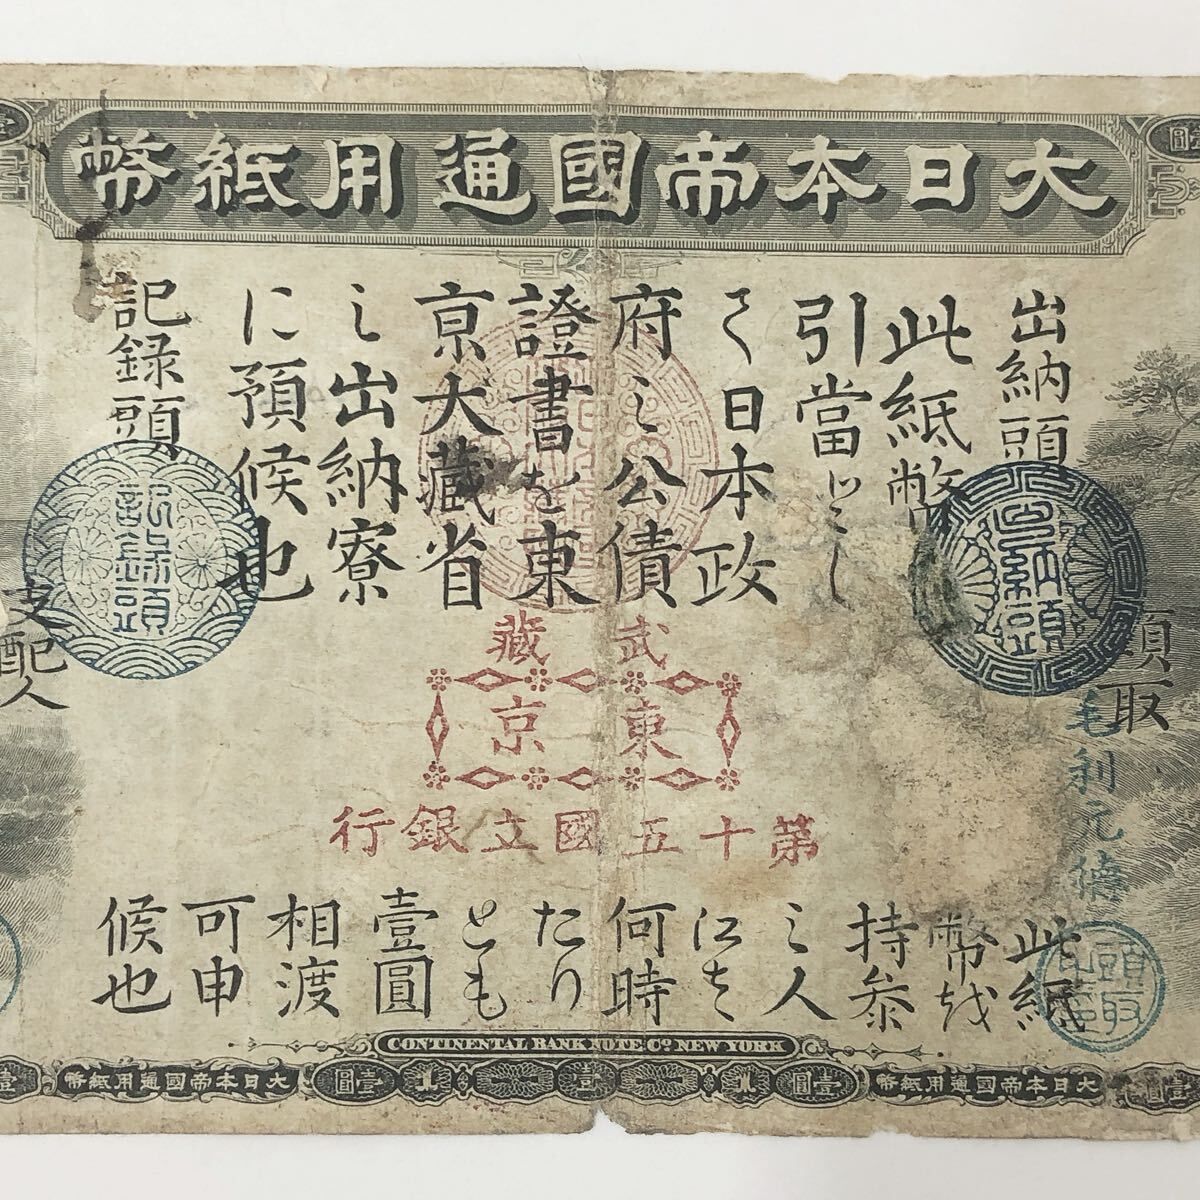 大日本帝國通用紙幣
出納頭
此紙幣
引當とし
て日本政
府之公債
證書を東
京大藏省
之出納寮
に預候也
記録頭
出納頭
記録頭
頭取
毛利元德
支配人
武藏
東京
第十五國立銀行
此紙
幣を
持參
之人
には
何時
たり
とも
壹圓
相渡
可申
候也
CONTINENTAL BANK NOTE Cº NEW YORK
大日本帝國通用紙幣
壹圓
壹
壹圓
大日本帝國通用紙幣
壹圓